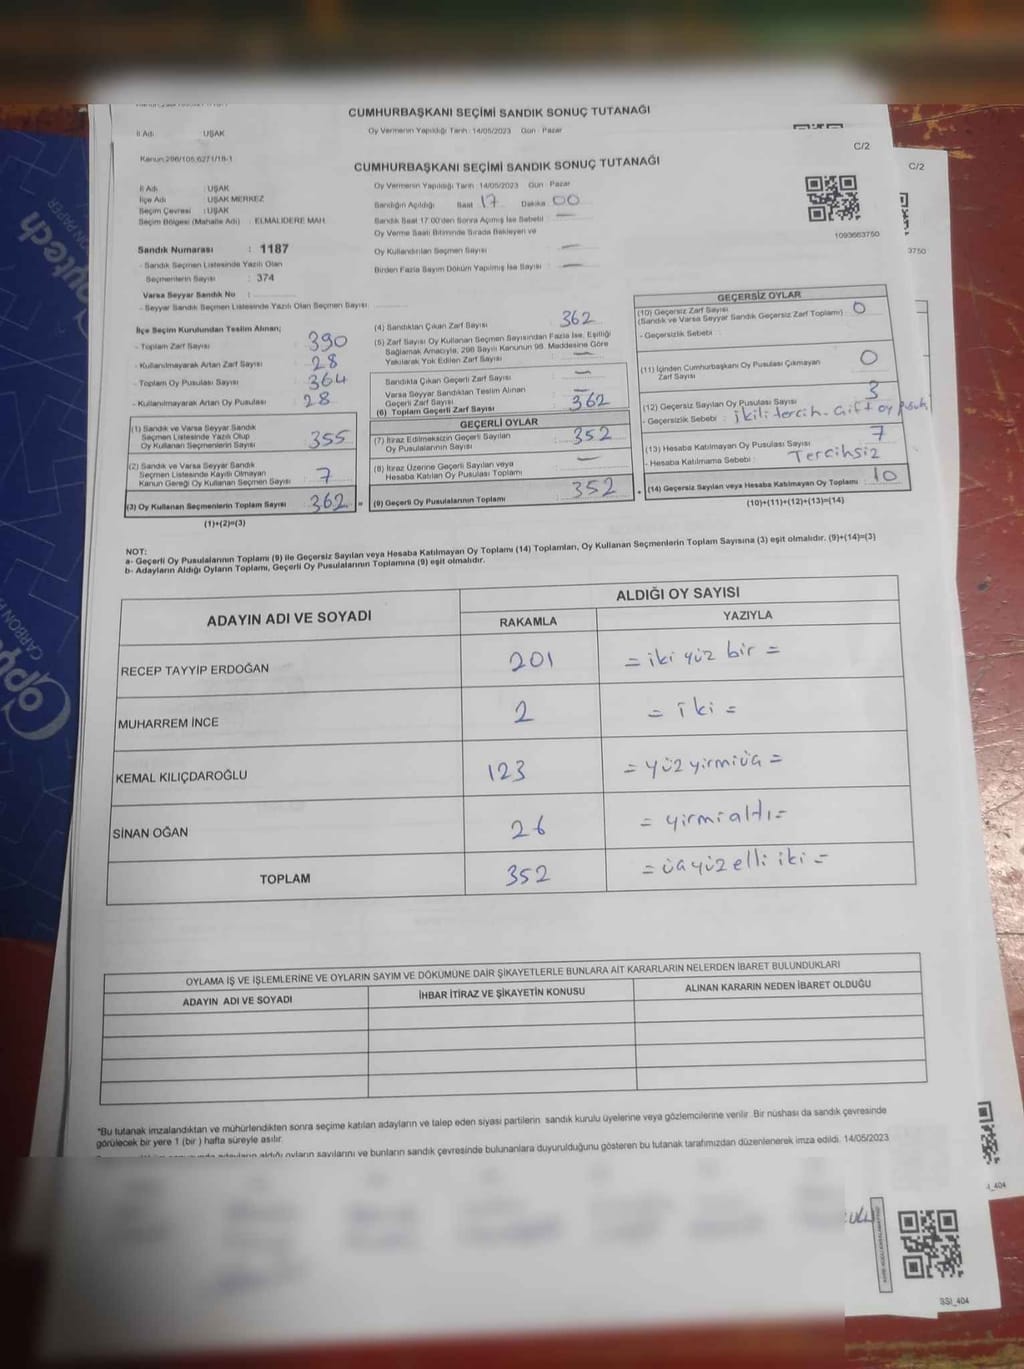 CUMHURBAŞKANI SEÇİMİ SANDIK SONUÇ TUTANAĞI
İl Adı : UŞAK
Oy Vermenin Yapıldığı Tarih : 14/05/2023 Gün : Pazar
C/2
CUMHURBAŞKANI SEÇİMİ SANDIK SONUÇ TUTANAĞI
C/2
İl Adı : UŞAK
İlçe Adı : UŞAK MERKEZ
Seçim Çevresi : UŞAK
Seçim Bölgesi (Mahalle Adı) : ELMALIDERE MAH.
Oy Vermenin Yapıldığı Tarih : 14/05/2023 Gün : Pazar
Sandığın Açıldığı Saat 17 Dakika 00
Sandık Saat 17:00'den Sonra Açılmış İse Sebebi : —
Oy Verme Saati Bitiminde Sırada Bekleyen ve
Oy Kullandırılan Seçmen Sayısı : —
Birden Fazla Sayım Döküm Yapılmış İse Sayısı : —
1093663750
3750
Sandık Numarası : 1187
- Sandık Seçmen Listesinde Yazılı Olan
Seçmenlerin Sayısı : 374
Varsa Seyyar Sandık No :
- Seyyar Sandık Seçmen Listesinde Yazılı Olan Seçmen Sayısı:
İlçe Seçim Kurulundan Teslim Alınan;
- Toplam Zarf Sayısı 390
- Kullanılmayarak Artan Zarf Sayısı 28
- Toplam Oy Pusulası Sayısı 364
- Kullanılmayarak Artan Oy Pusulası 28
(1) Sandık ve Varsa Seyyar Sandık
Seçmen Listesinde Yazılı Olup
Oy Kullanan Seçmenlerin Sayısı 355
(2) Sandık ve Varsa Seyyar Sandık
Seçmen Listesinde Kayıtlı Olmayan
Kanun Gereği Oy Kullanan Seçmen Sayısı 7
(3) Oy Kullanan Seçmenlerin Toplam Sayısı 362 =
(1)+(2)=(3)
(4) Sandıktan Çıkan Zarf Sayısı 362
(5) Zarf Sayısı Oy Kullanan Seçmen Sayısından Fazla İse, Eşitliği
Sağlamak Amacıyla, 298 Sayılı Kanunun 98. Maddesine Göre
Yakılarak Yok Edilen Zarf Sayısı —
Sandıkta Çıkan Geçerli Zarf Sayısı —
Varsa Seyyar Sandıktan Teslim Alınan
Geçerli Zarf Sayısı —
(6) Toplam Geçerli Zarf Sayısı 362
GEÇERLİ OYLAR
(7) İtiraz Edilmeksizin Geçerli Sayılan
Oy Pusulalarının Sayısı 352
(8) İtiraz Üzerine Geçerli Sayılan veya
Hesaba Katılan Oy Pusulası Toplamı —
(9) Geçerli Oy Pusulalarının Toplamı 352 +
GEÇERSİZ OYLAR
(10) Geçersiz Zarf Sayısı
(Sandık ve Varsa Seyyar Sandık Geçersiz Zarf Toplamı) 0
- Geçersizlik Sebebi :
(11) İçinden Cumhurbaşkanı Oy Pusulası Çıkmayan
Zarf Sayısı 0
(12) Geçersiz Sayılan Oy Pusulası Sayısı 3
- Geçersizlik Sebebi : ikili tercih. çift oy
(13) Hesaba Katılmayan Oy Pusulası Sayısı 7
- Hesaba Katılmama Sebebi : Tercihsiz
(14) Geçersiz Sayılan veya Hesaba Katılmayan Oy Toplamı 10
(10)+(11)+(12)+(13)=(14)
NOT:
a- Geçerli Oy Pusulalarının Toplamı (9) ile Geçersiz Sayılan veya Hesaba Katılmayan Oy Toplamı (14) Toplamları, Oy Kullanan Seçmenlerin Toplam Sayısına (3) eşit olmalıdır. (9)+(14)=(3)
b- Adayların Aldığı Oyların Toplamı, Geçerli Oy Pusulalarının Toplamına (9) eşit olmalıdır.
ADAYIN ADI VE SOYADI
ALDIĞI OY SAYISI
RAKAMLA YAZIYLA
RECEP TAYYİP ERDOĞAN 201 = iki yüz bir =
MUHARREM İNCE 2 = iki =
KEMAL KILIÇDAROĞLU 123 = yüz yirmi üç =
SİNAN OĞAN 26 = yirmi altı =
TOPLAM 352 = üç yüz elli iki =
OYLAMA İŞ VE İŞLEMLERİNE VE OYLARIN SAYIM VE DÖKÜMÜNE DAİR ŞİKAYETLERLE BUNLARA AİT KARARLARIN NELERDEN İBARET BULUNDUKLARI
ADAYIN ADI VE SOYADI İHBAR İTİRAZ VE ŞİKAYETİN KONUSU ALINAN KARARIN NEDEN İBARET OLDUĞU
*Bu tutanak imzalandıktan ve mühürlendikten sonra seçime katılan adayların ve talep eden siyasi partilerin sandık kurulu üyelerine veya gözlemcilerine verilir. Bir nüshası da sandık çevresinde
görülecek bir yere 1 (bir) hafta süreyle asılır.
adayların aldığı oyların sayılarını ve bunların sandık çevresinde bulunanlara duyurulduğunu gösteren bu tutanak tarafımızdan düzenlenerek imza edildi. 14/05/2023
_404
SSI_404
CARBON